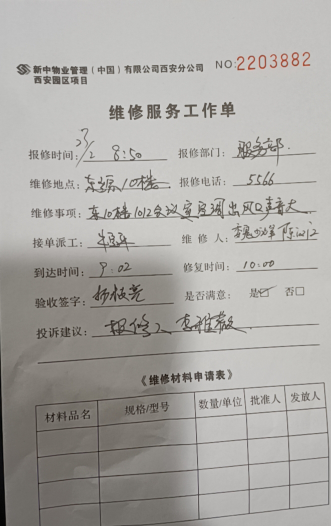 新中物业管理(中国)有限公司西安分公司 NO:2203882
西安园区项目
维修服务工作单
报修时间: 27/2 8:50 报修部门: 服务部
维修地点: 东 10楼 报修电话: 5566
维修事项: 东10楼1012会议室空调出风口声音大
接单派工: 维 修 人:
到达时间: 9:02 修复时间: 10:00
验收签字: 是否满意: 是☑ 否□
投诉建议: 报修人
《维修材料申请表》
材料品名 规格/型号 数量/单位 批准人 发放人